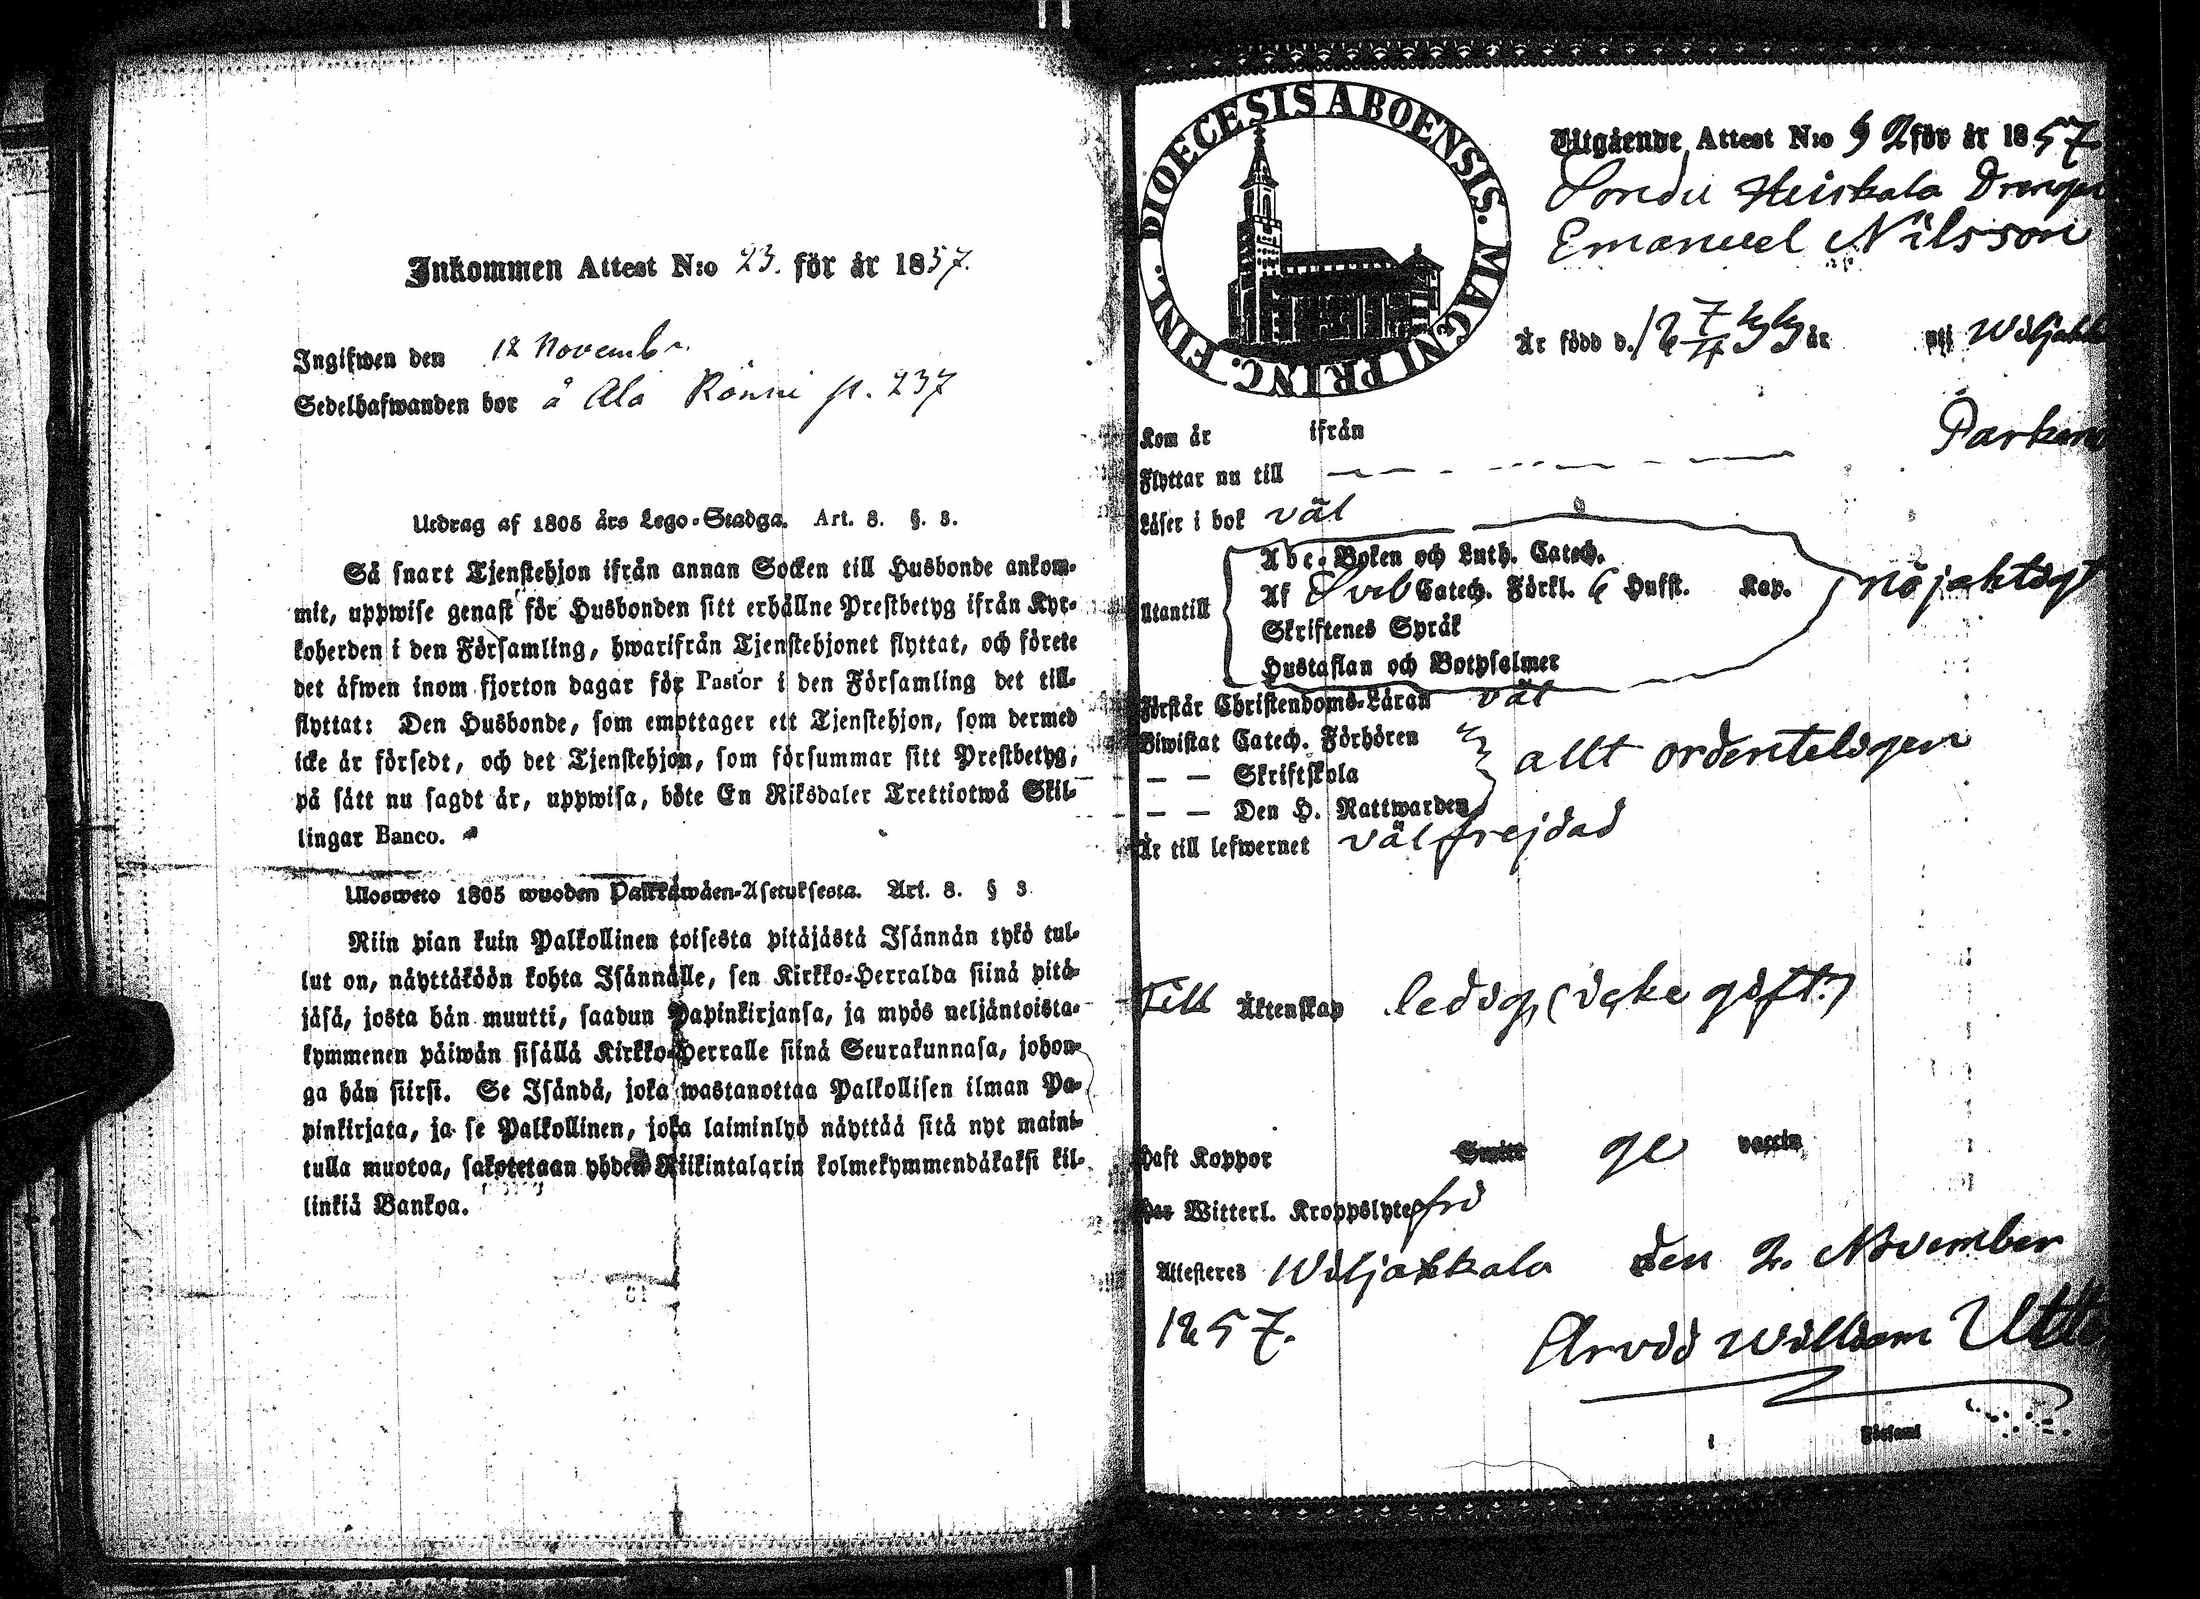 Inkommen Attest N:o 23. för år 1857.
Ingifwen den 12 Novembr.
Sedelhafwanden bor å Ala Rönni p. 237
Utdrag af 1805 års Lego-Stadga. Art. 8. §. 3.
Så snart Tjenstehjon ifrån annan Socken till Husbonde ankom-
mit, uppwise genast för Husbonden sitt erhållne Prestbetyg ifrån Kyr-
koherden i den Församling, hwarifrån Tjenstehjonet flyttat, och förete
det äfwen inom fjorton dagar för Pastor i den Församling det till-
flyttat: Den Husbonde, som emottager ett Tjenstehjon, som dermed
icke är försedt, och det Tjenstehjon, som försummar sitt Prestbetyg,
på sätt nu sagdt är, uppwisa, böte En Riksdaler Trettiotwå Skil-
lingar Banco.
Ulosweto 1805 wuoden Palkkawäen-Asetuksesta. Art. 8. § 3
Niin pian kuin Palkollinen toisesta pitäjästä Isännän tykö tul-
lut on, näyttäköön kohta Isännälle, sen Kirkko-Herralda siinä pitä-
jäsä, josta hän muutti, saadun Papinkirjansa, ja myös neljäntoista-
kymmenen päiwän sisällä Kirkko-Herralle siinä Seurakunnasa, johon-
ga hän siirsi. Se Isändä, joka wastanottaa Palkollisen ilman Pa-
pinkirjata, ja se Palkollinen, joka laiminlyö näyttää sitä nyt maini-
tulla muotoa, sakotetaan yhden Riikintalarin kolmekymmendäkaksi kil-
linkiä Bankoa.
DIOECESIS ABOENSIS. MAGNI PRINC. FINL.
Utgående Attest N:o 92 för år 1857
Heiskala Drengen
Emanuel Nilsson
Är född d. 18 7/11 33 år uti Wiljakk
Kom år ifrån Parkano
Flyttar nu till
Läser i bok väl
Abc-Boken och Luth. Catech.
Utantill Af Svib Catech. Förkl. 6 Hufst. Kap. nöjaktigt
Skriftenes Språk
Hustaflan och Botpsalmer
Förstår Christendoms-Läran väl
Biwistat Catech. Förhören
— — Skriftskola allt ordenteligen
— — Den H. Nattwarden
Är till lefwernet välfrejdad
Till Äktenskap ledig, (icke gift.)
Haft Koppor ge vaccin
Har Witterl. Kroppslyte fri
Attesteres Wiljakkala den 2. November
1857.
Arvid William
Församl